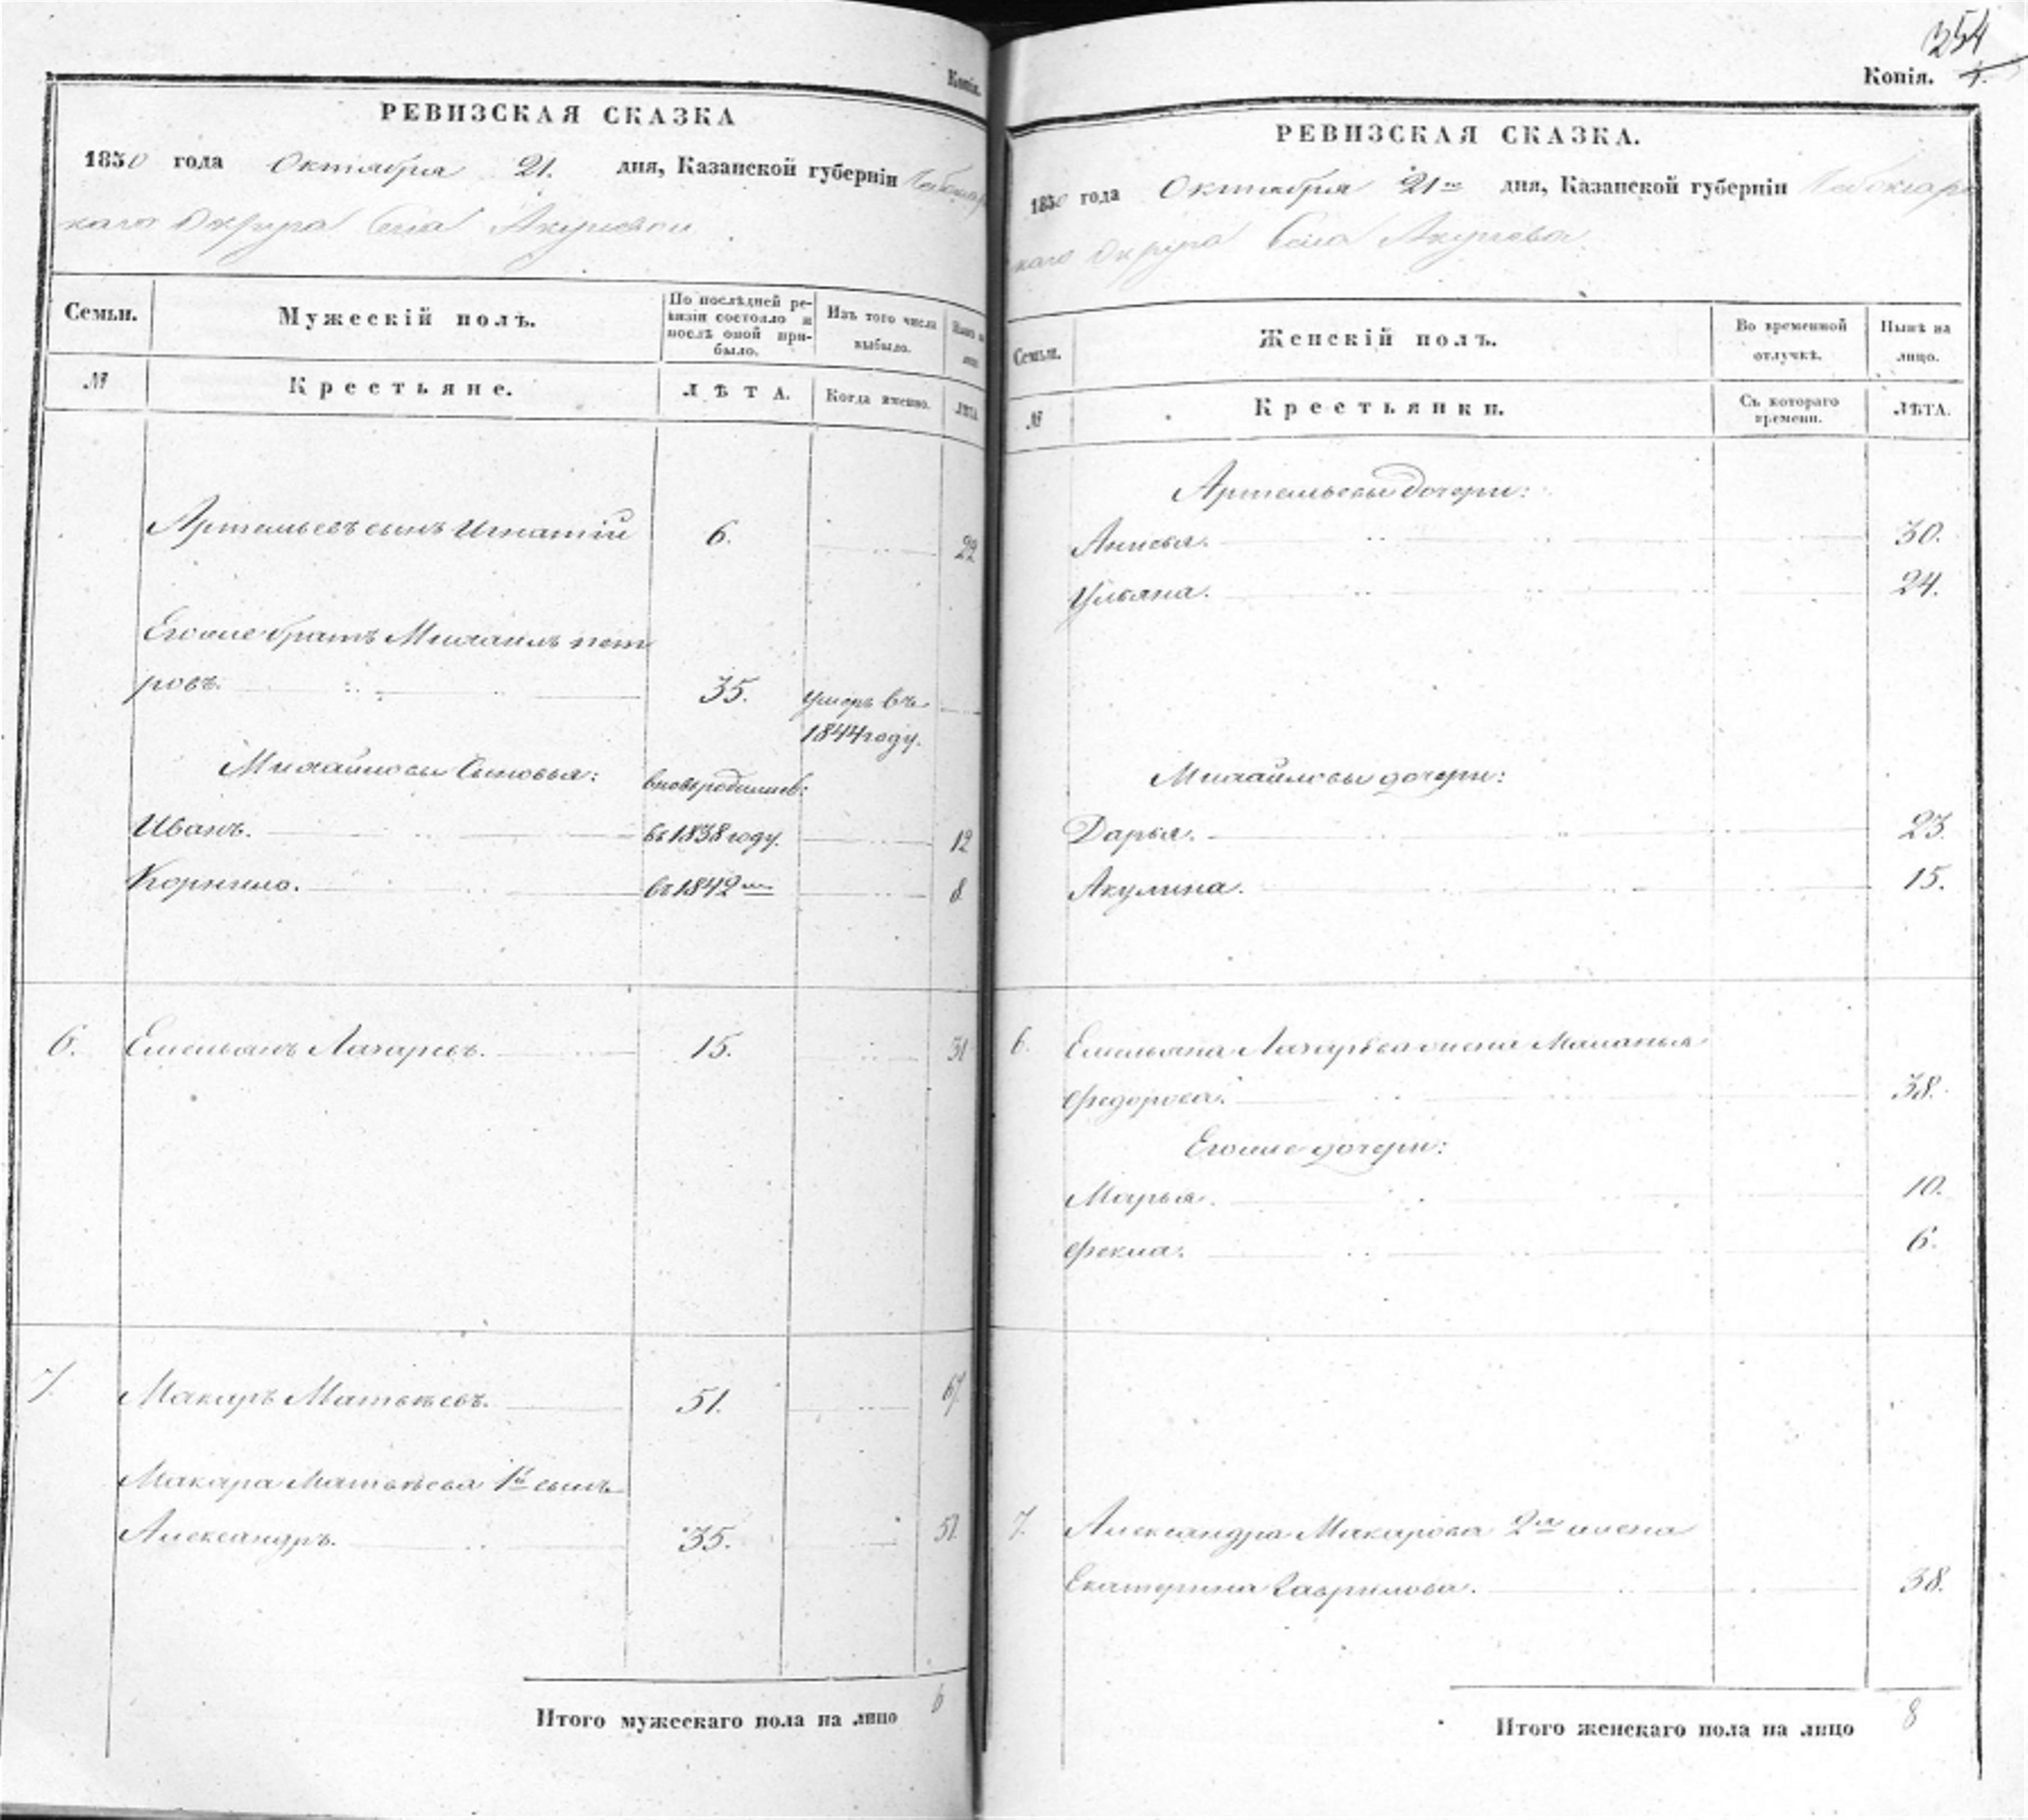 Копія.
РЕВИЗСКАЯ СКАЗКА
1850 года Октября 21. дня, Казанской губерніи Чебоксар
каго Округа Села
Семьи.
Мужескій полъ.
По послѣдней ре-
визіи состояло и
послѣ оной при-
было.
Изъ того числа
выбыло.
Нынѣ на
лицо
№
Крестьяне.
ЛѢТА.
Когда именно.
ЛѢТА
Артемьевъ сынъ Игнатій 6. 22
Егоже братъ Михаилъ пет
ровъ. 35. умеръ въ
1844 году.
Михайловы Сыновья: вновьродились:
Иванъ. въ 1838 году. 12
Корнило. въ 1842 м 8
6. Емельянъ Лазаревъ. 15. 31
7. Макаръ Матвѣевъ. 51. 67
Макара Матвѣева 1й сынъ
Александръ. 35. 51.
Итого мужескаго пола на лицо 6
354
Копія. 4.
РЕВИЗСКАЯ СКАЗКА.
1850 года Октября 21го дня, Казанской губерніи Чебоксарс
каго Округа Села
Семьи.
Женскій полъ.
Во временной
отлучкѣ.
Нынѣ на
лицо.
№
Крестьянки.
Съ котораго
времени.
ЛѢТА.
Артемьевы дочери:
Анисья. 30.
Ульяна. 24.
Михайловы дочери:
Дарья. 23.
Акулина. 15.
6. Емельяна Лазарѣва жена Маланья
Федорова. 38.
Егоже дочери:
Марья. 10.
Фекла. 6.
7. Александра Макарова 2я жена
Екатерина Гаврилова. 38.
Итого женскаго пола на лицо 8